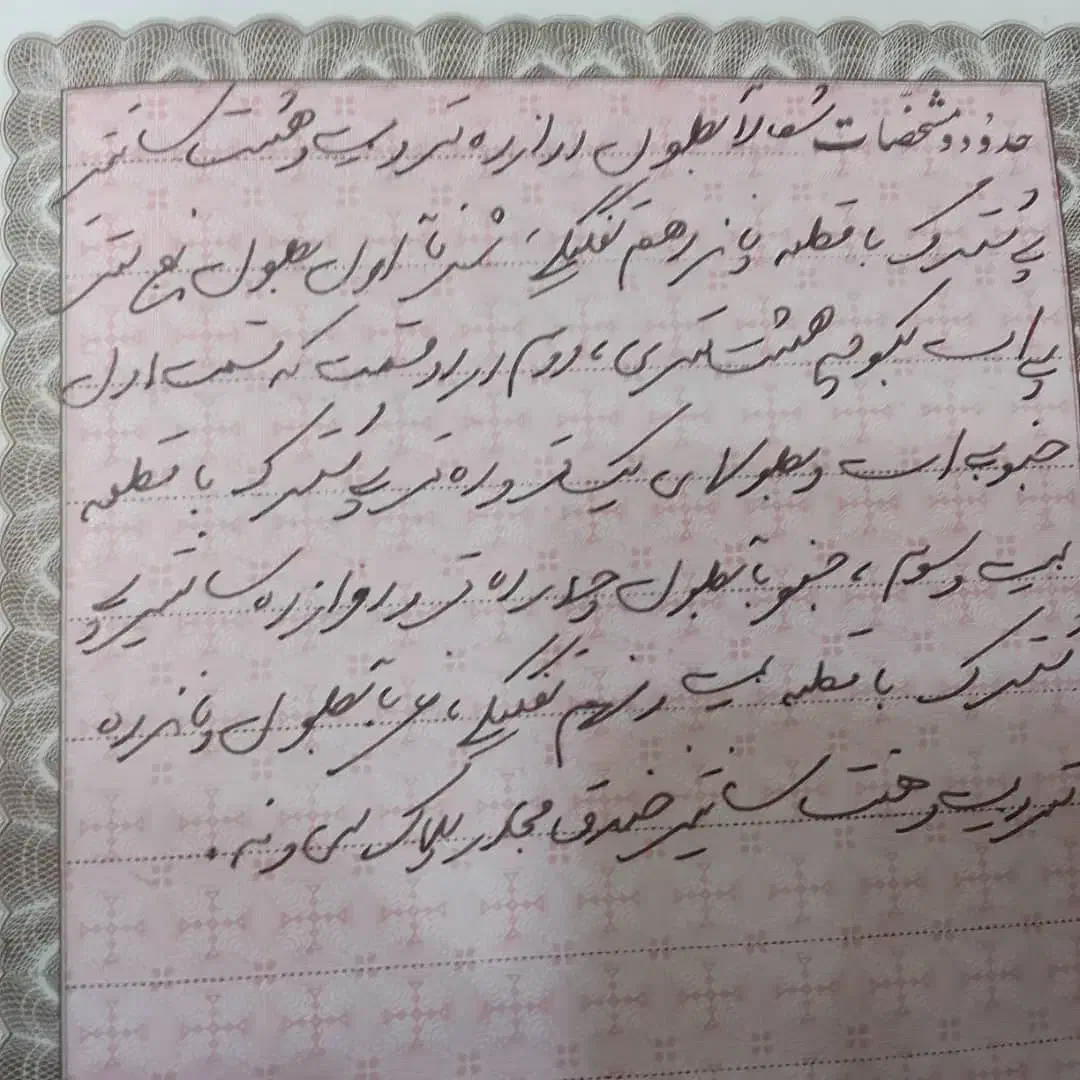 حدود و مشخصات شمالاً بطول دوازده متر و بیست و هشت سانتیمتر
پی مشترک با قطعه پانزدهم تفکیکی، شرقاً اول بطول پنج متر
پی است بکوچه هشت متری، دوم در دو قسمت که قسمت اول
جنوبی است و بطولهای یک متر و ده متر پی مشترک با قطعه
بیست و سوم، جنوباً بطول چهارده متر و دوازده سانتیمتر پی
مشترک با قطعه بیست و نهم تفکیکی، غرباً بطول پانزده
متر و بیست و هفت سانتیمتر خندق مجاور پلاک سی و نه.